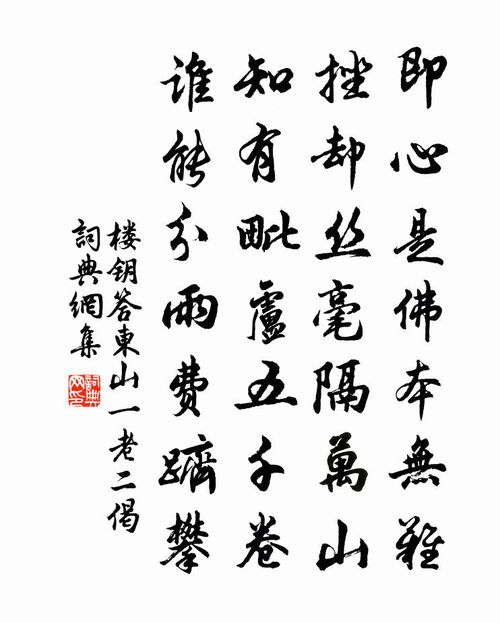 即心是佛本無難
挫却丝毫隔萬山
知有毗盧五千卷
誰能分雨費躋攀
楼钥答東山一老二偈
詞典網集